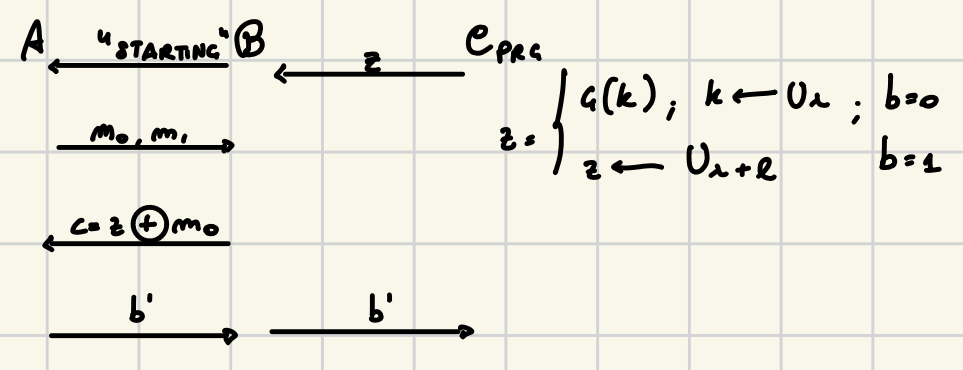 A "STARTING" B C PRG
z
z = { G(k) ; k ← Uλ ; b=0
z ← Uλ+ℓ b=1
m₀, m₁
c= z ⊕ m₀
b' b'